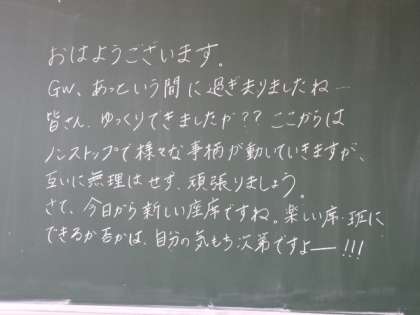 おはようございます。
GW、あっという間に過ぎ去りましたね…
皆さん、ゆっくりできましたか?? ここからは
ノンストップで様々な事柄が動いていきますが、
互いに無理はせず、頑張りましょう。
さて、今日から新しい座席ですね。楽しい席・班に
できるか否かは、自分の気もち次第ですよー!!!